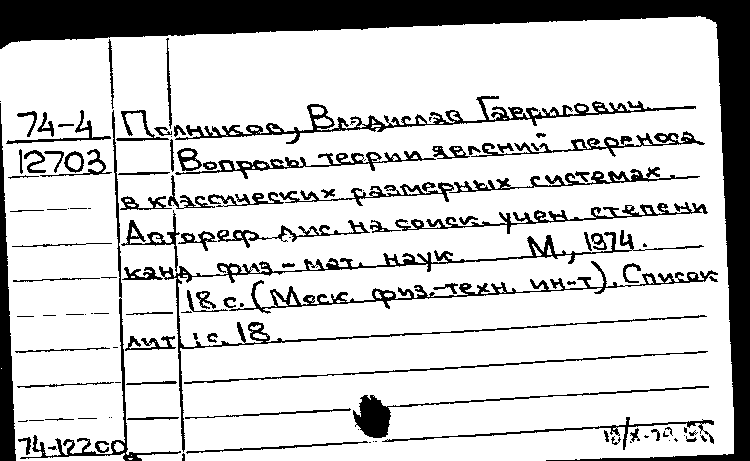 74-4 Полников, Владислав Гаврилович.
12703 Вопросы теории явлений переноса
в классических размерных системах.
Автореф. дис. на соиск. учен. степени
канд. физ.-мат. наук. М., 1974.
18 с. (Моск. физ.-техн. ин-т). Список
лит.: с. 18.
74-12200